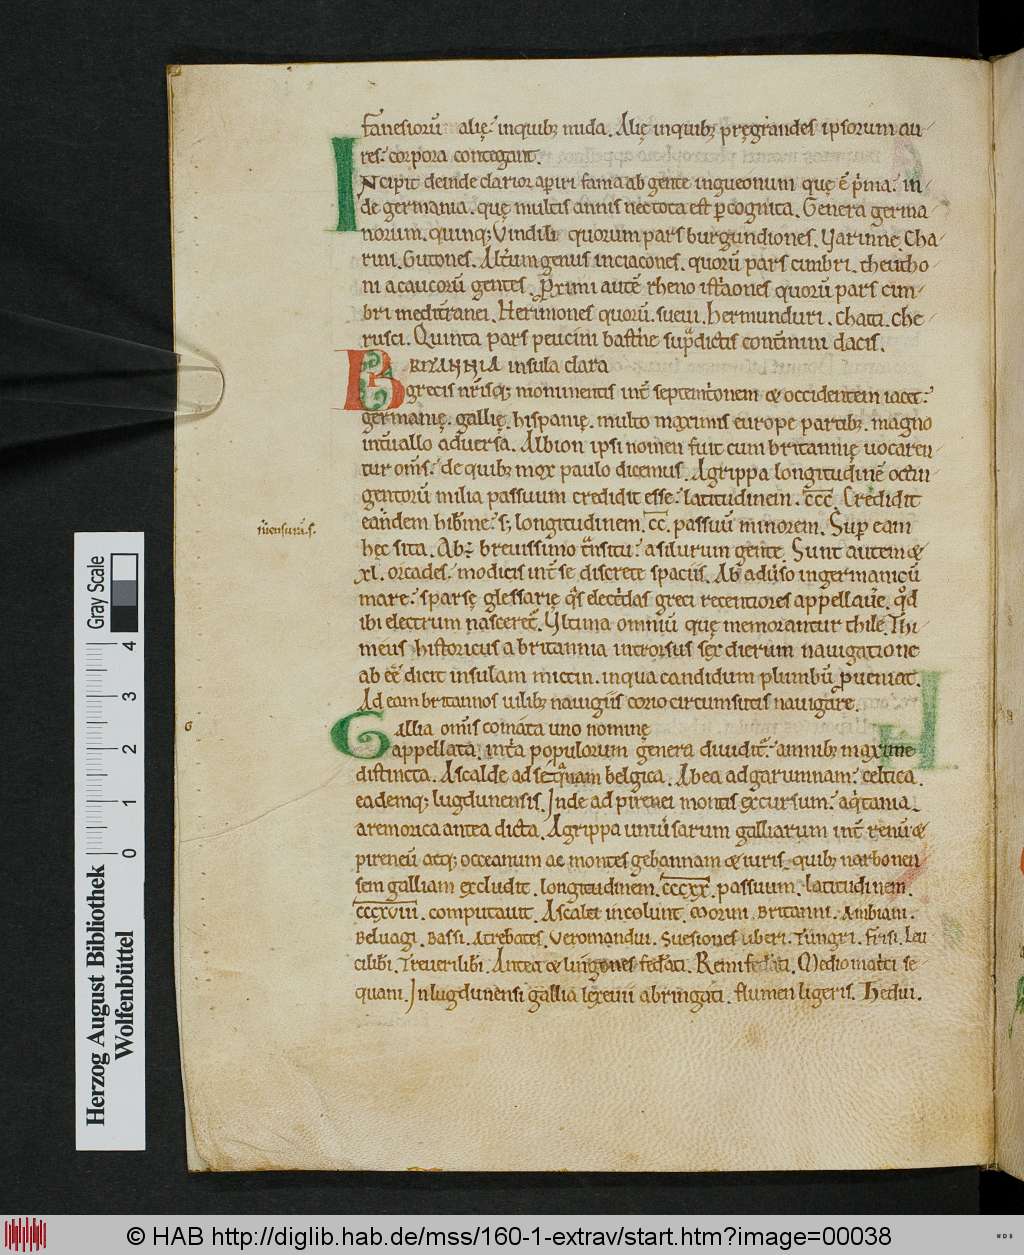 fanesiorū alię. inquibꝫ nuda. Alię inquibꝫ pręgrandes ipsorum au-
res. corpora contegant.
Ncipit deinde clarior aperiri fama ab gente ingueonum quę ē pͥma. in-
de germania. quę multis annis nec tota est ꝑcognita. Genera germa-
norum. quinqꝫ Vindili quorum pars burgundiones. Varinne. Cha-
rini. Gutones. Altͣum genus inciacones. quorū pars cimbri. theutho-
ni acaucorū gentes. Proximi autē rheno istriaones quorū pars cim-
bri meditͣranei. Hermiones quorū. sueui. hermunduri. chatti. che-
rusci. Quinta pars peucini basthͤne supͣdictis contͤmini dacis.
BRITANNIA insula clara
grecis nrīsqꝫ monimentis intͤ septemtͥonem & occidentem iacet.
germanię. gallię. hispanię. multo maxumis europe partibꝫ. magno
intͤuallo aduersa. Albion ipsi nomen fuit cum britannię uocaren-
tur oms̄. de quibꝫ mox paulo dicemus. Agrippa longitudinē octin-
gentorū milia passuum credidit esse. latitudinem. ccc. Credidit
eandem hibͤrnie. sꝫ longitudinem. cc. passuū minorem. Super eam
hęc sita. Abꝫ breuissimo tͣnsitu. a silurum gente. Sunt autem &
xl. orcades. modicis intͤ se discrete spaciis. Ab aduͤso in germanicū
mare. sparsę glessarię qͣs electͥdas greci recentiores appellaue. qͦd
ibi electrum nasceretͬ. Vltima omniū quę memorantur thile. Thi-
meus historicus a britannia introrsus sex dierum nauigatione
ab eē dicit insulam mictin. in qua candidum plumbū ꝓueniat.
Ad eam britannos uilibꝫ nauigiis corio circumsutis nauigare.
Gallia oms̄ comata uno nominę
appellata. intͣa populorum genera diuiditͬ. amnibꝫ maxime
distincta. A scalde ad sequanam belgica. Ab ea ad garumnam. celtica.
eademqꝫ lugdunensis. Inde ad pirenei montis excursum. aqͥtania.
aremorica antea dicta. Agrippa uniuͤsarum galliarum intͤ renū &
pireneū atqꝫ occeanum ac montes gebannam & iuris. quibꝫ narbonen-
sem galliam excludit. longitudinem. cccxx. passuum. latitudinem.
cccxviii. computauit. A scalet incolunt. Morini. Britanni. Ambiani.
Beluagi. Bassi. Atrebates. Veromandui. Suesiones uberi. Tungri. Frisi. Leu-
ci libͤri. Treueri libͤri. Antea & lingones fedͤati. Remi fedͤati. Mediomatͥci. se-
quani. In lugdunensi gallia lexeuii abringati. flumen ligeris. Hedui.
Gray Scale
0 1 2 3 4
Herzog August Bibliothek
Wolfenbüttel
© HAB http://diglib.hab.de/mss/160-1-extrav/start.htm?image=00038